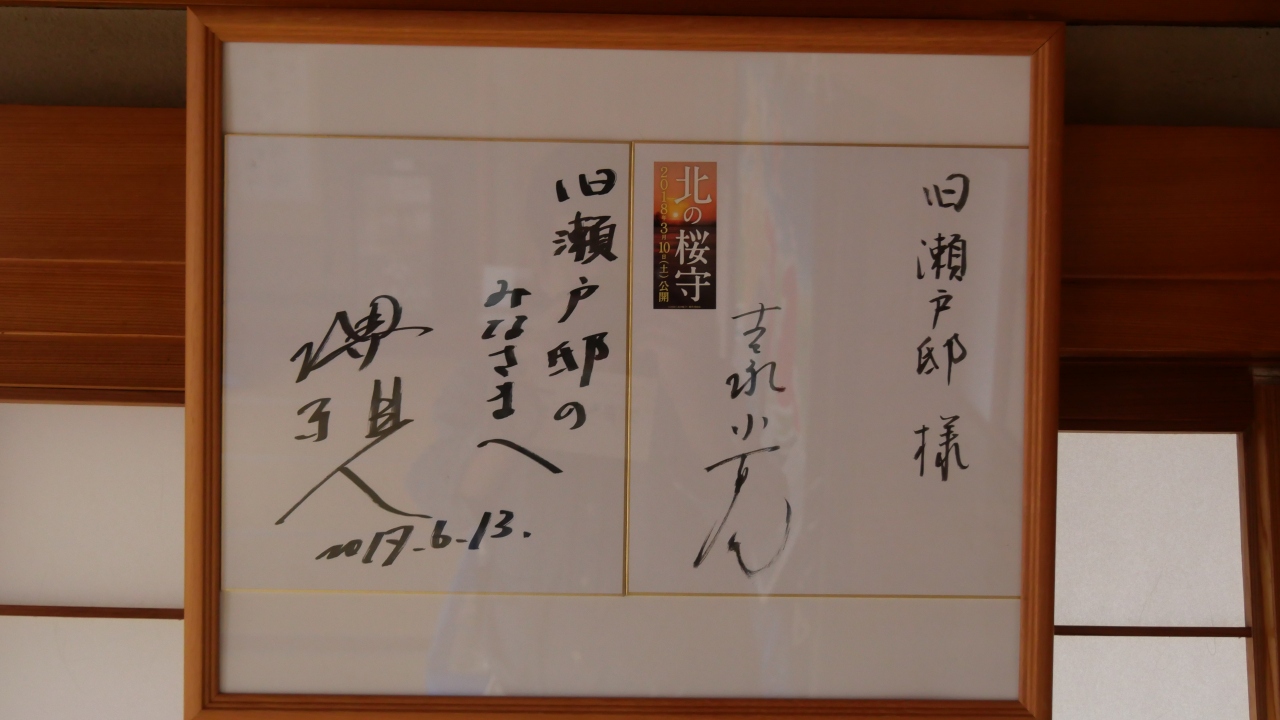 旧瀬戸邸 様
北の桜守
2018年3月10日(土)公開
吉永小百合
旧瀬戸邸の
みなさまへ
堺 雅人
2017.6.13.